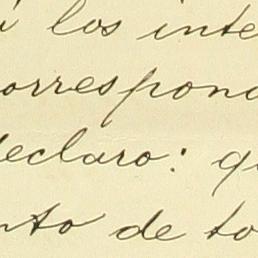 á los inte
orrespond
declaro: qu
nto de to